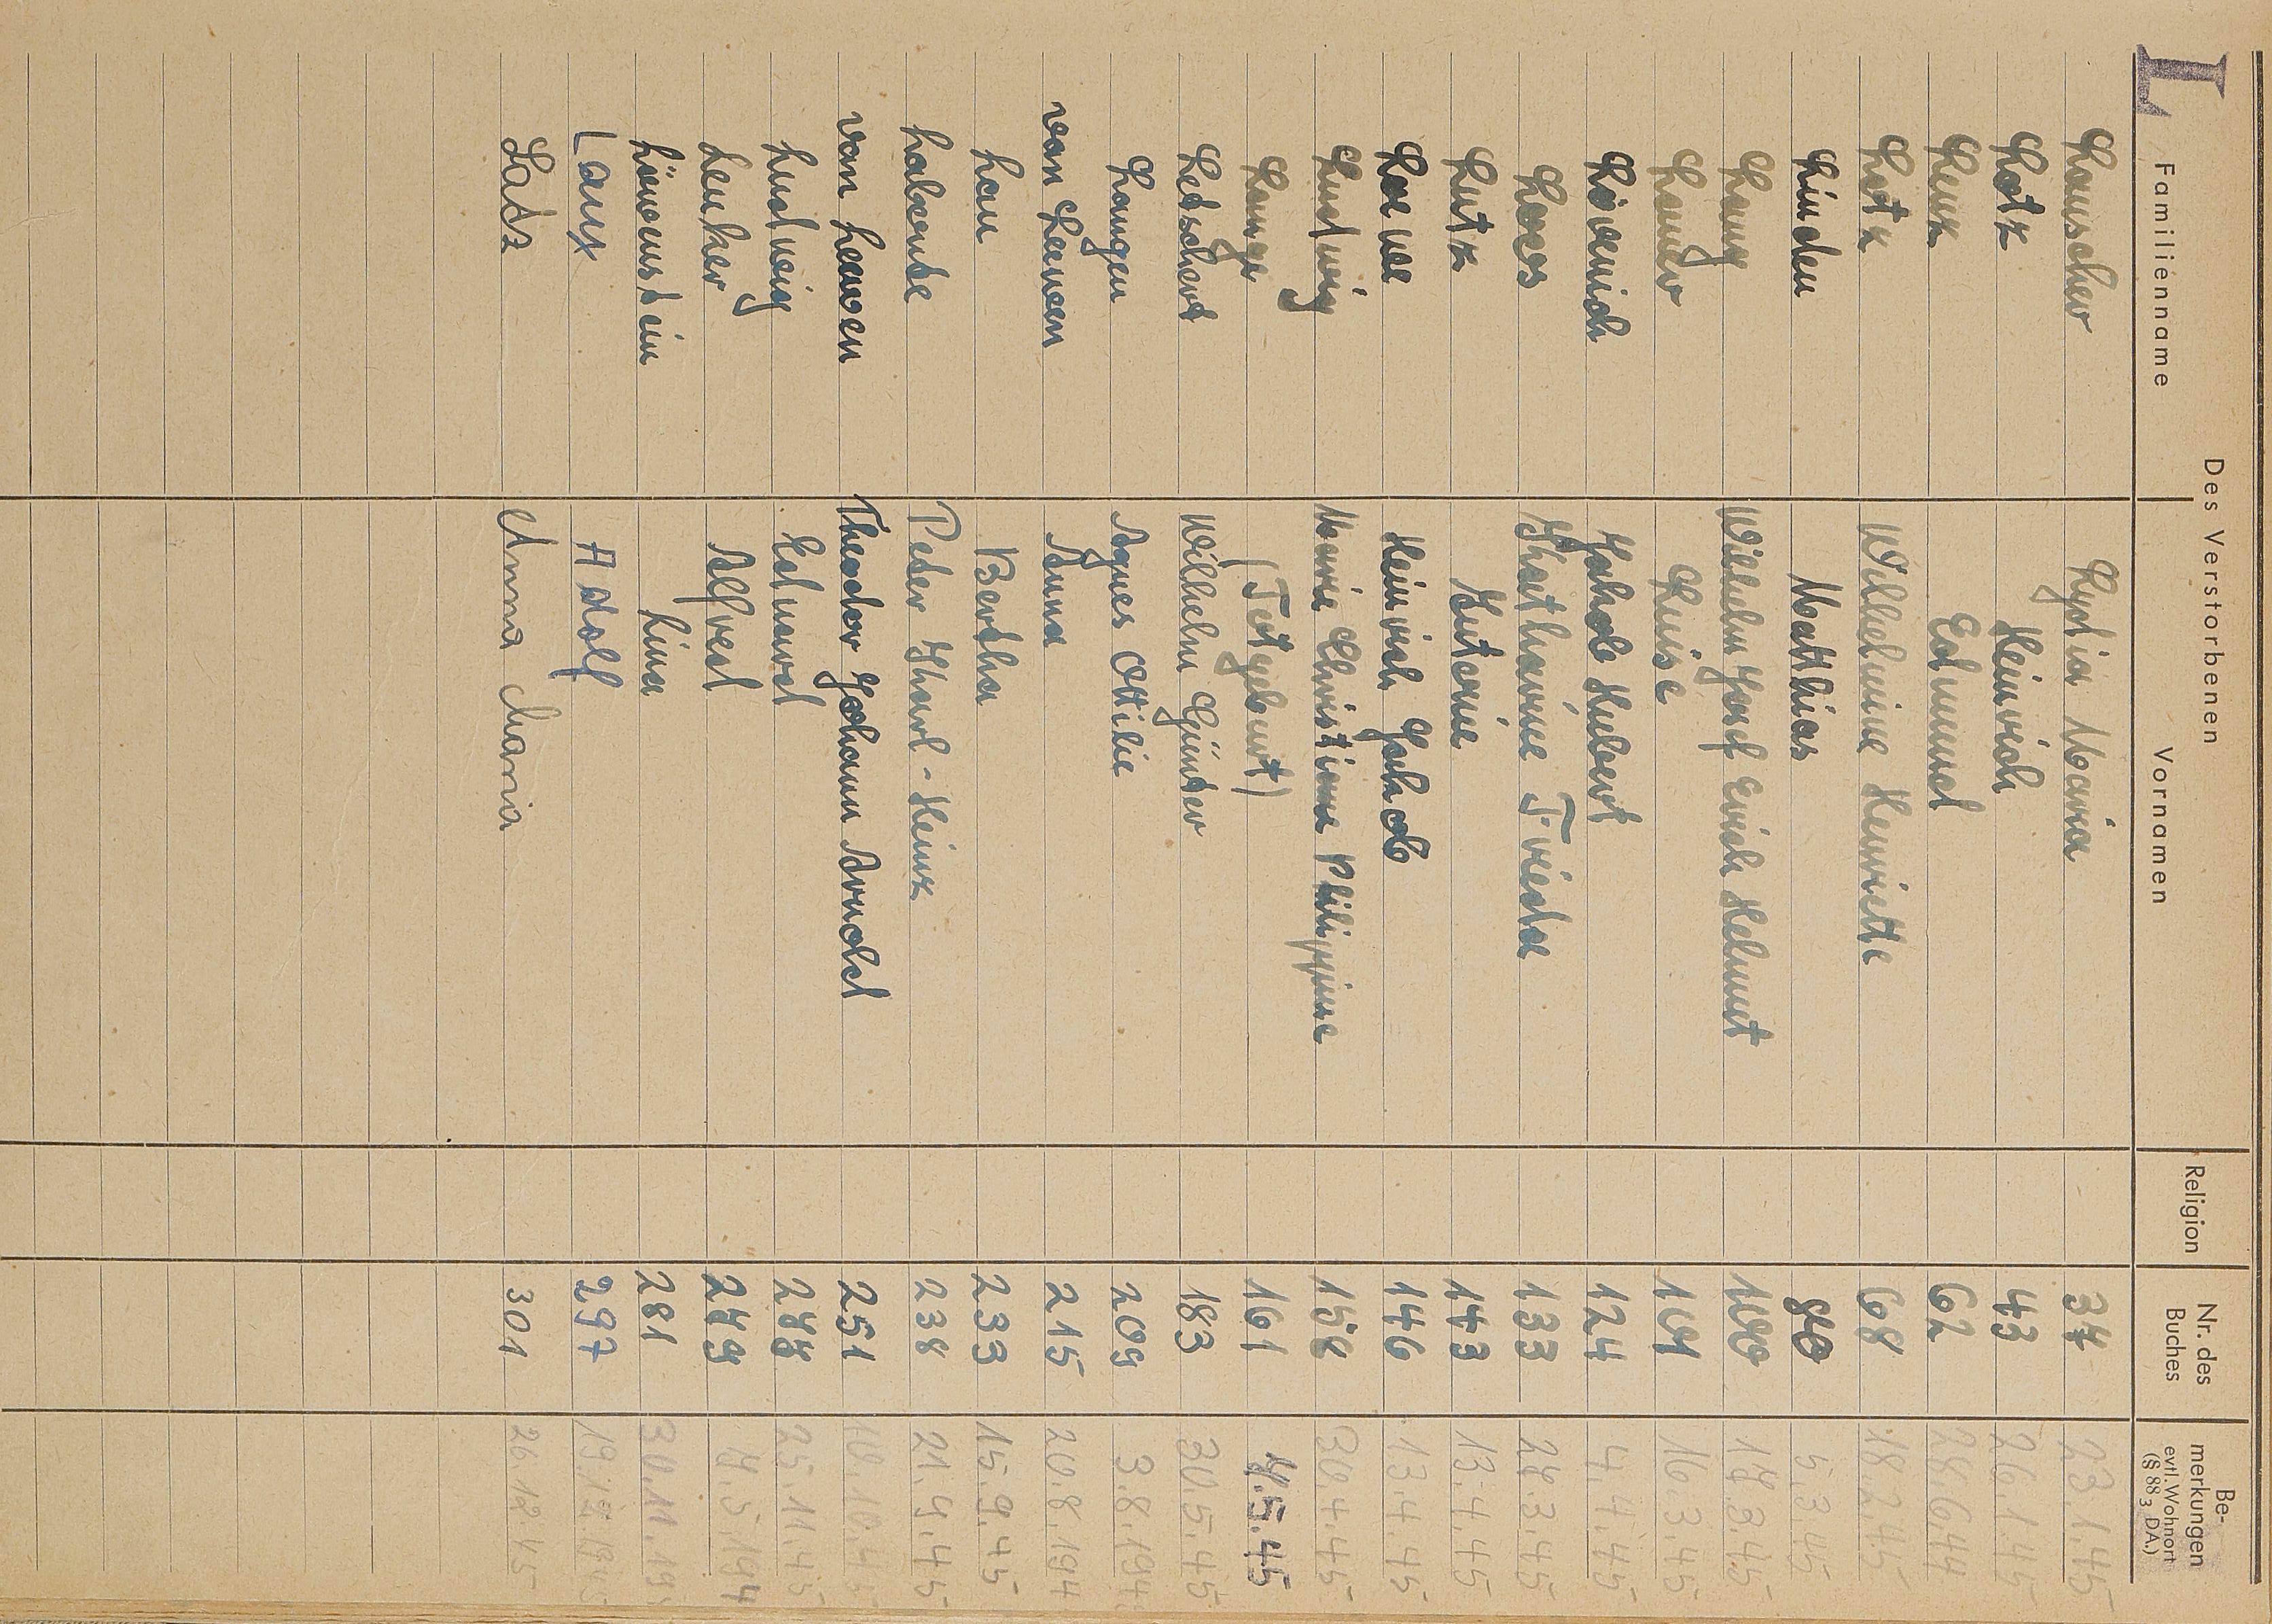 L
Des Verstorbenen
Familienname Vornamen Religion Nr. des Buches Bemerkungen evtl. Wohnort (§ 88 3 DA.)
Lauscher Lydia Maria 34 23.1.45
Lotz Heinrich 43 26.1.45
Lenz Edmund 62 28.6.44
Lotz Wilhelmine Henriette 68 18.2.45
Linden Matthias 80 5.3.45
Lang Wilhelm Josef Erich Helmut 100 3.45
Lander Luise 101 16.3.45
Lövenich Jakob Hubert 124 4.4.45
Loos Katharine Frieda 133 3.45
Lutz Katarine 143 13.4.45
Heinrich Jakob 146 13.4.45
Ludwig Marie Christiane Philippine 158 30.4.45
Lange (Totgeburt) 161 4.5.45
Letschert Wilhelm Günter 183 30.5.45
Langen Agnes Ottilie 209 3.8.194
van Leeuwen Anna 215 20.8.194
Lau Bertha 233 15.9.45
Labonte Peter Karl-Heinz 238 21.9.45
van Leeuwen Theodor Johann Arnold 251 10.45
Ludwig Eduard 25.11.45
Lenker Alfred 5.194
Löwenstein Lina 281 30.11.19
Laux Adolf 297 19.12.1945
Latz Anna Maria 301 26.12.45